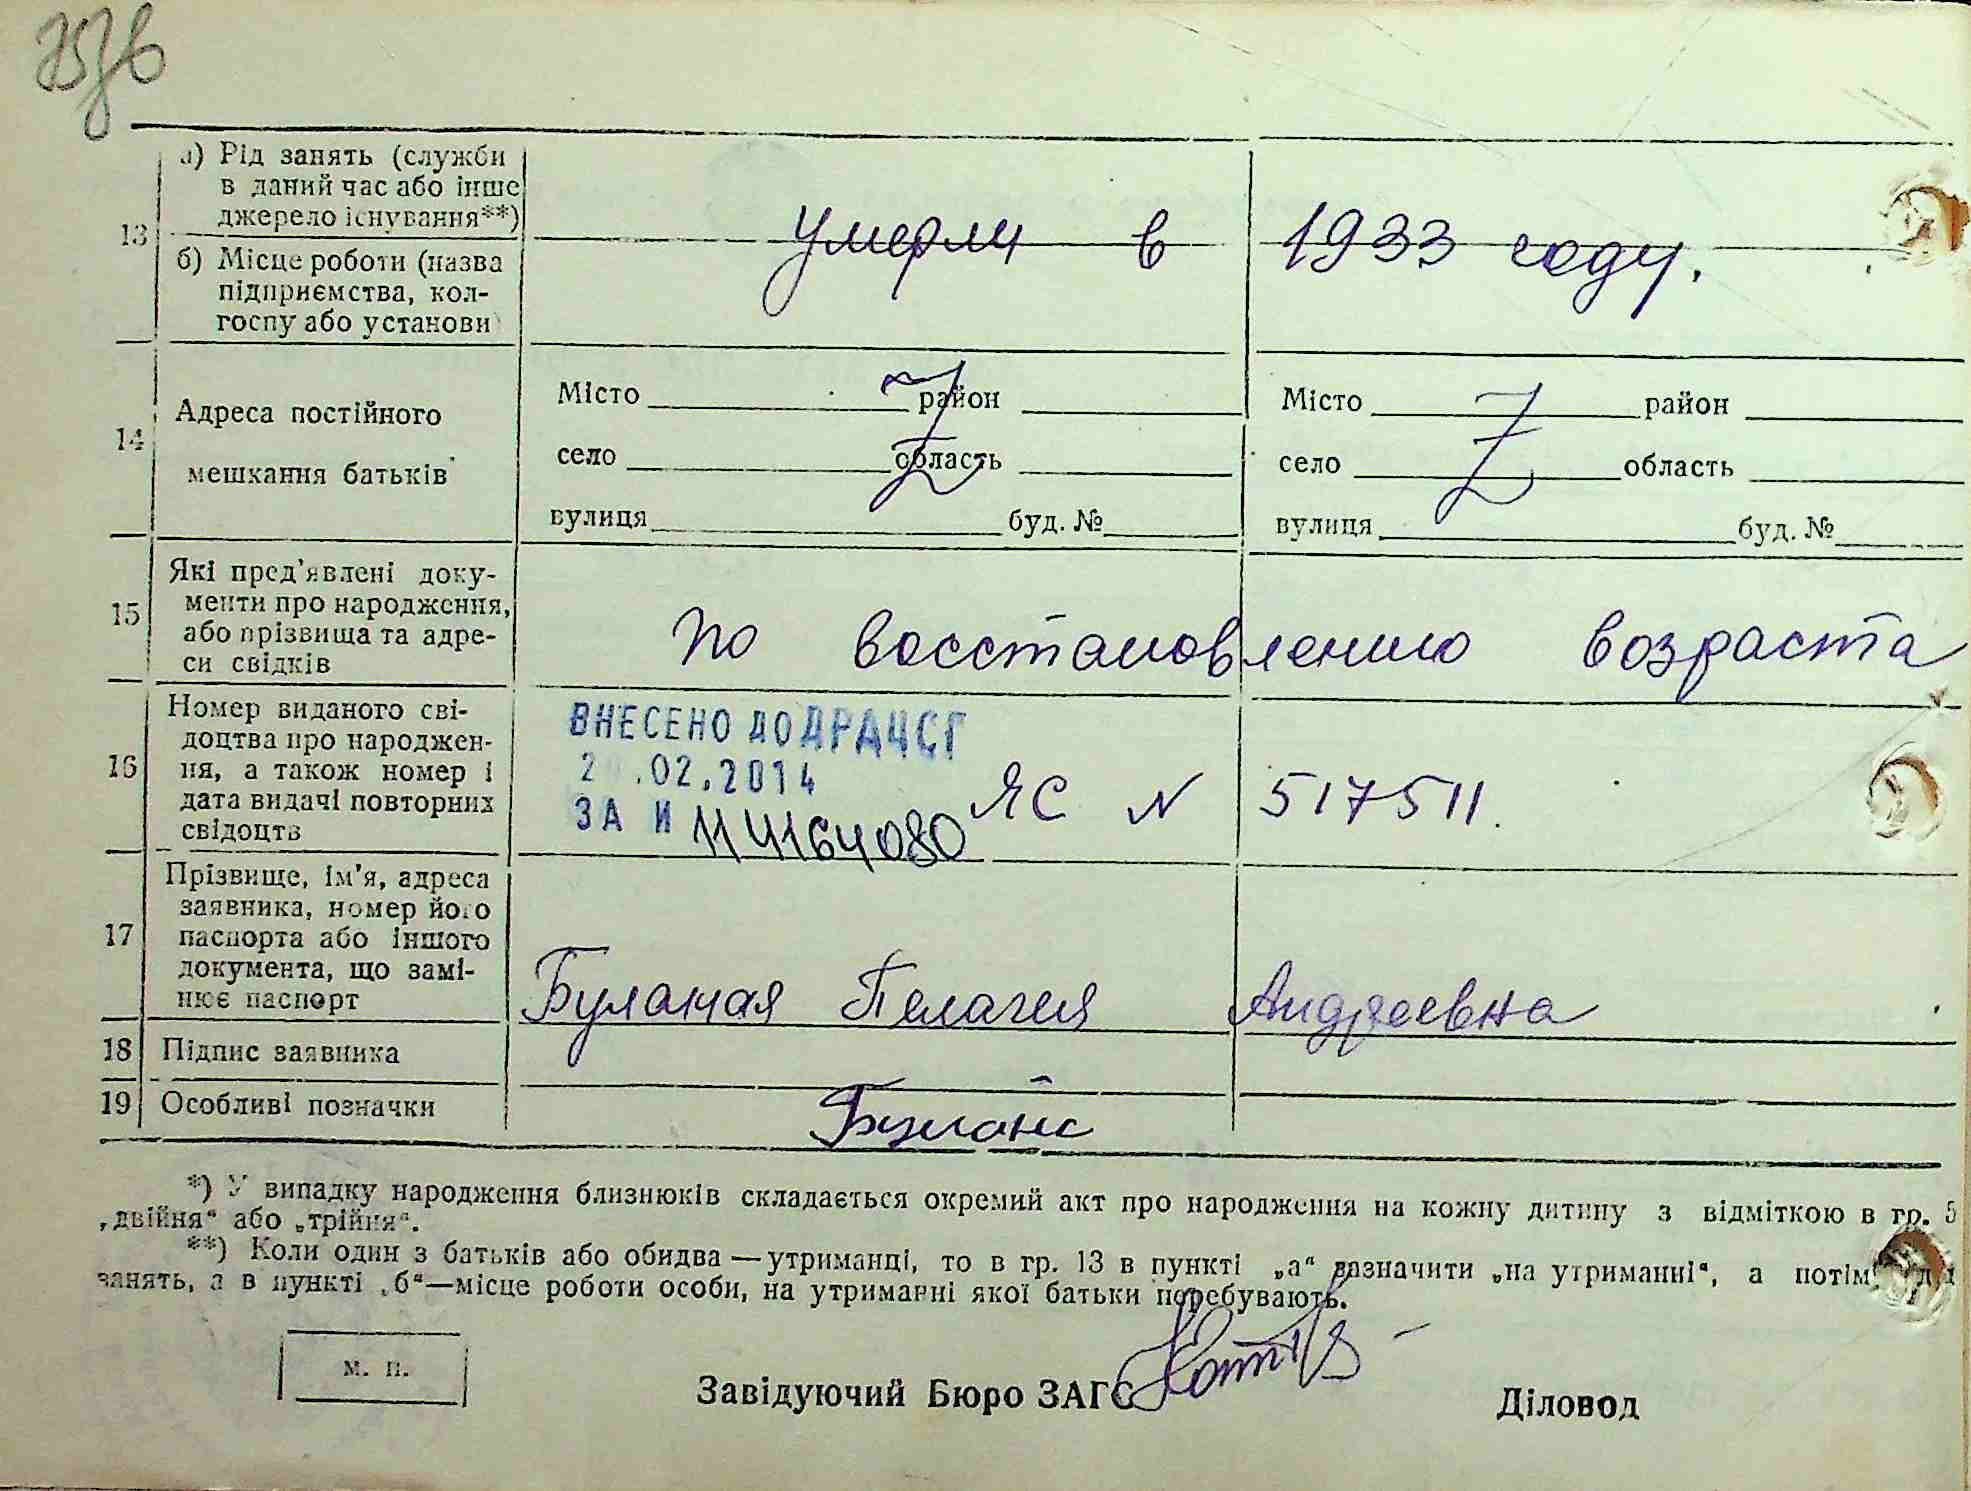 13
а) Рід занять (служби
в даний час або інше
джерело існування**)
б) Місце роботи (назва
підприємства, кол-
госпу або установи
умерли в 1933 году.
14
Адреса постійного
мешкання батьків
Місто район
село область
вулиця буд. №
Місто район
село область
вулиця буд. №
15
Які пред'явлені доку-
менти про народження,
або прізвища та адре-
си свідків
по восстановлению возраста
16
Номер виданого сві-
доцтва про народжен-
ня, а також номер і
дата видачі повторних
свідоцтв
ВНЕСЕНО ДО ДРАЦСГ
2 .02.2014
ЗА И 114164080
ЯС N 517511.
17
Прізвище, ім'я, адреса
заявника, номер його
паспорта або іншого
документа, що замі-
нює паспорт
Буланая Пелагея Андреевна
18 Підпис заявника
19 Особливі позначки
*) У випадку народження близнюків складається окремий акт про народження на кожну дитину з відміткою в гр. 5
„двійня“ або „трійня“.
**) Коли один з батьків або обидва—утриманці, то в гр. 13 в пункті „а“ зазначити „на утриманні“, а потім
занять, а в пункті „б“—місце роботи особи, на утриманні якої батьки перебувають.
м. п.
Завідуючий Бюро ЗАГС
Діловод